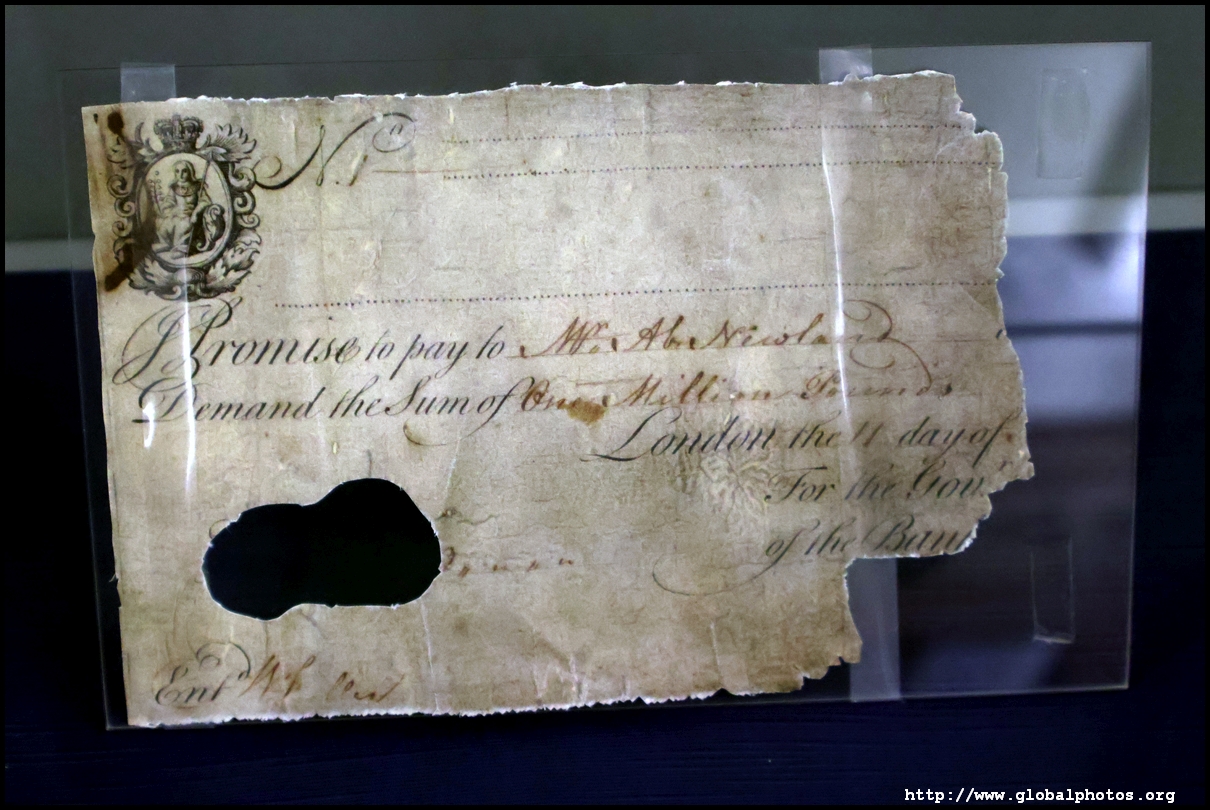 No. 1
I Promise to pay to Mr. Ab. Newland
Demand the Sum of One Million Pounds
London the 11 day of
For the Gov.r
of the Ban
Ent.d
http://www.globalphotos.org